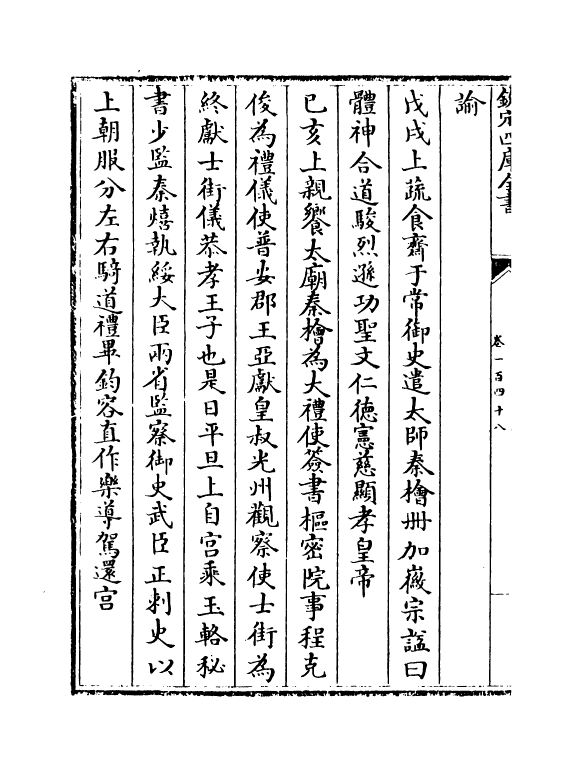 欽定四庫全書
卷一百四十八
諭
戊戌上蔬食齋于常御史遣太師秦檜冊加徽宗諡曰
體神合道駿烈遜功聖文仁德憲慈顯孝皇帝
已亥上親饗太廟秦檜為大禮使簽書樞密院事程克
俊為禮儀使普安郡王亞獻皇叔光州觀察使士街為
終獻士街儀恭孝王子也是日平旦上自宫乘玉輅秘
書少監秦熺執綏大臣兩省監察御史武臣正刺史以
上朝服分左右騎道禮畢鈞容直作樂導駕還宫